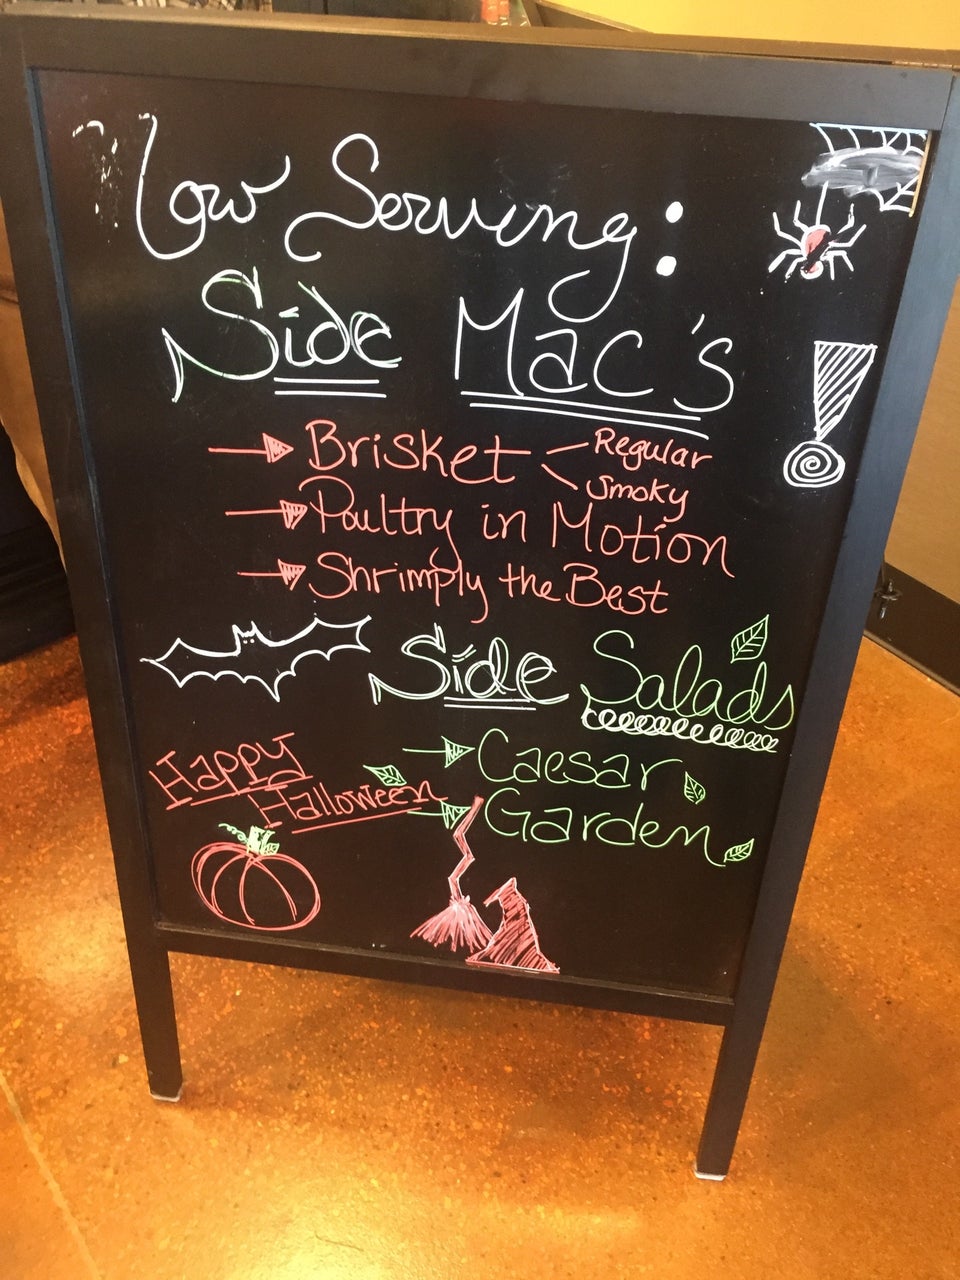 Now Serving:
Side Mac's
Brisket Regular
Smoky
Poultry in Motion
Shrimply the Best
Side Salads
Caesar
Garden
Happy
Halloween